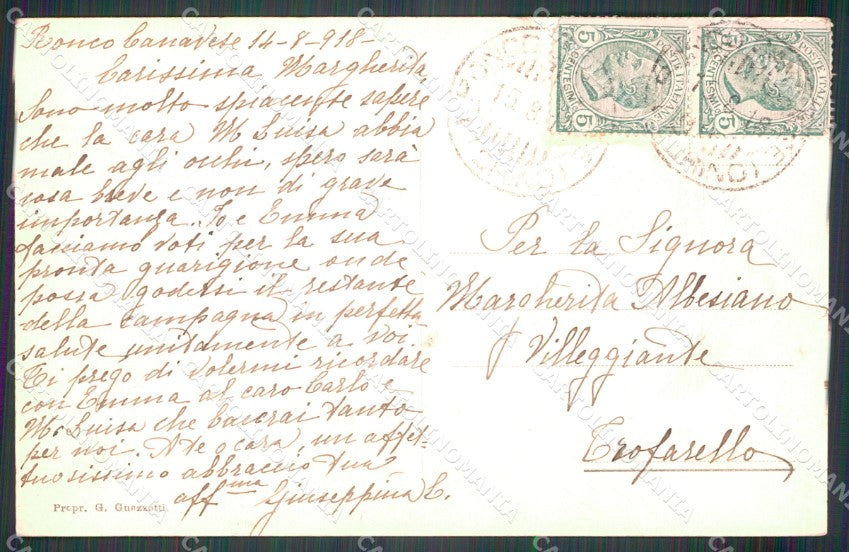 Ronco Canavese 14-8-918-
Carissima Margherita,
Sono molto spiacente sapere
che la cara M Luisa abbia
male agli occhi, spero sarà
cosa breve e non di grave
importanza. Io e Emma
facciamo voti per la sua
pronta guarigione onde
possa godersi il restante
della campagna in perfetta
salute unitamente a voi.
Ti prego di volermi ricordare
con Emma al caro Carlo e
M. Luisa che baccrai tanto
per noi. A te o cara, un affet-
tuosissimo abbraccio tua
aff.ma Giuseppina C.
Propr. G. Guazzotti
5 CENTESIMI 5
POSTE ITALIANE
5 CENTESIMI 5
POSTE ITALIANE
Per la Signora
Margherita Albesiano
Villeggiante
Trofarello
CARTOLINOMANIA